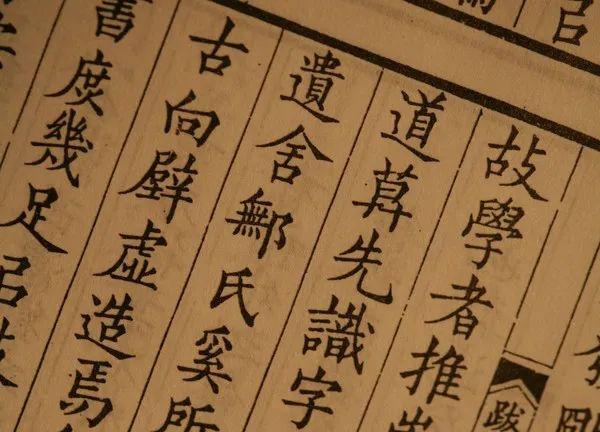 跋
故學者推
道莫先識字
遺舍鄦氏奚所
古向壁虛造焉
書庶幾足